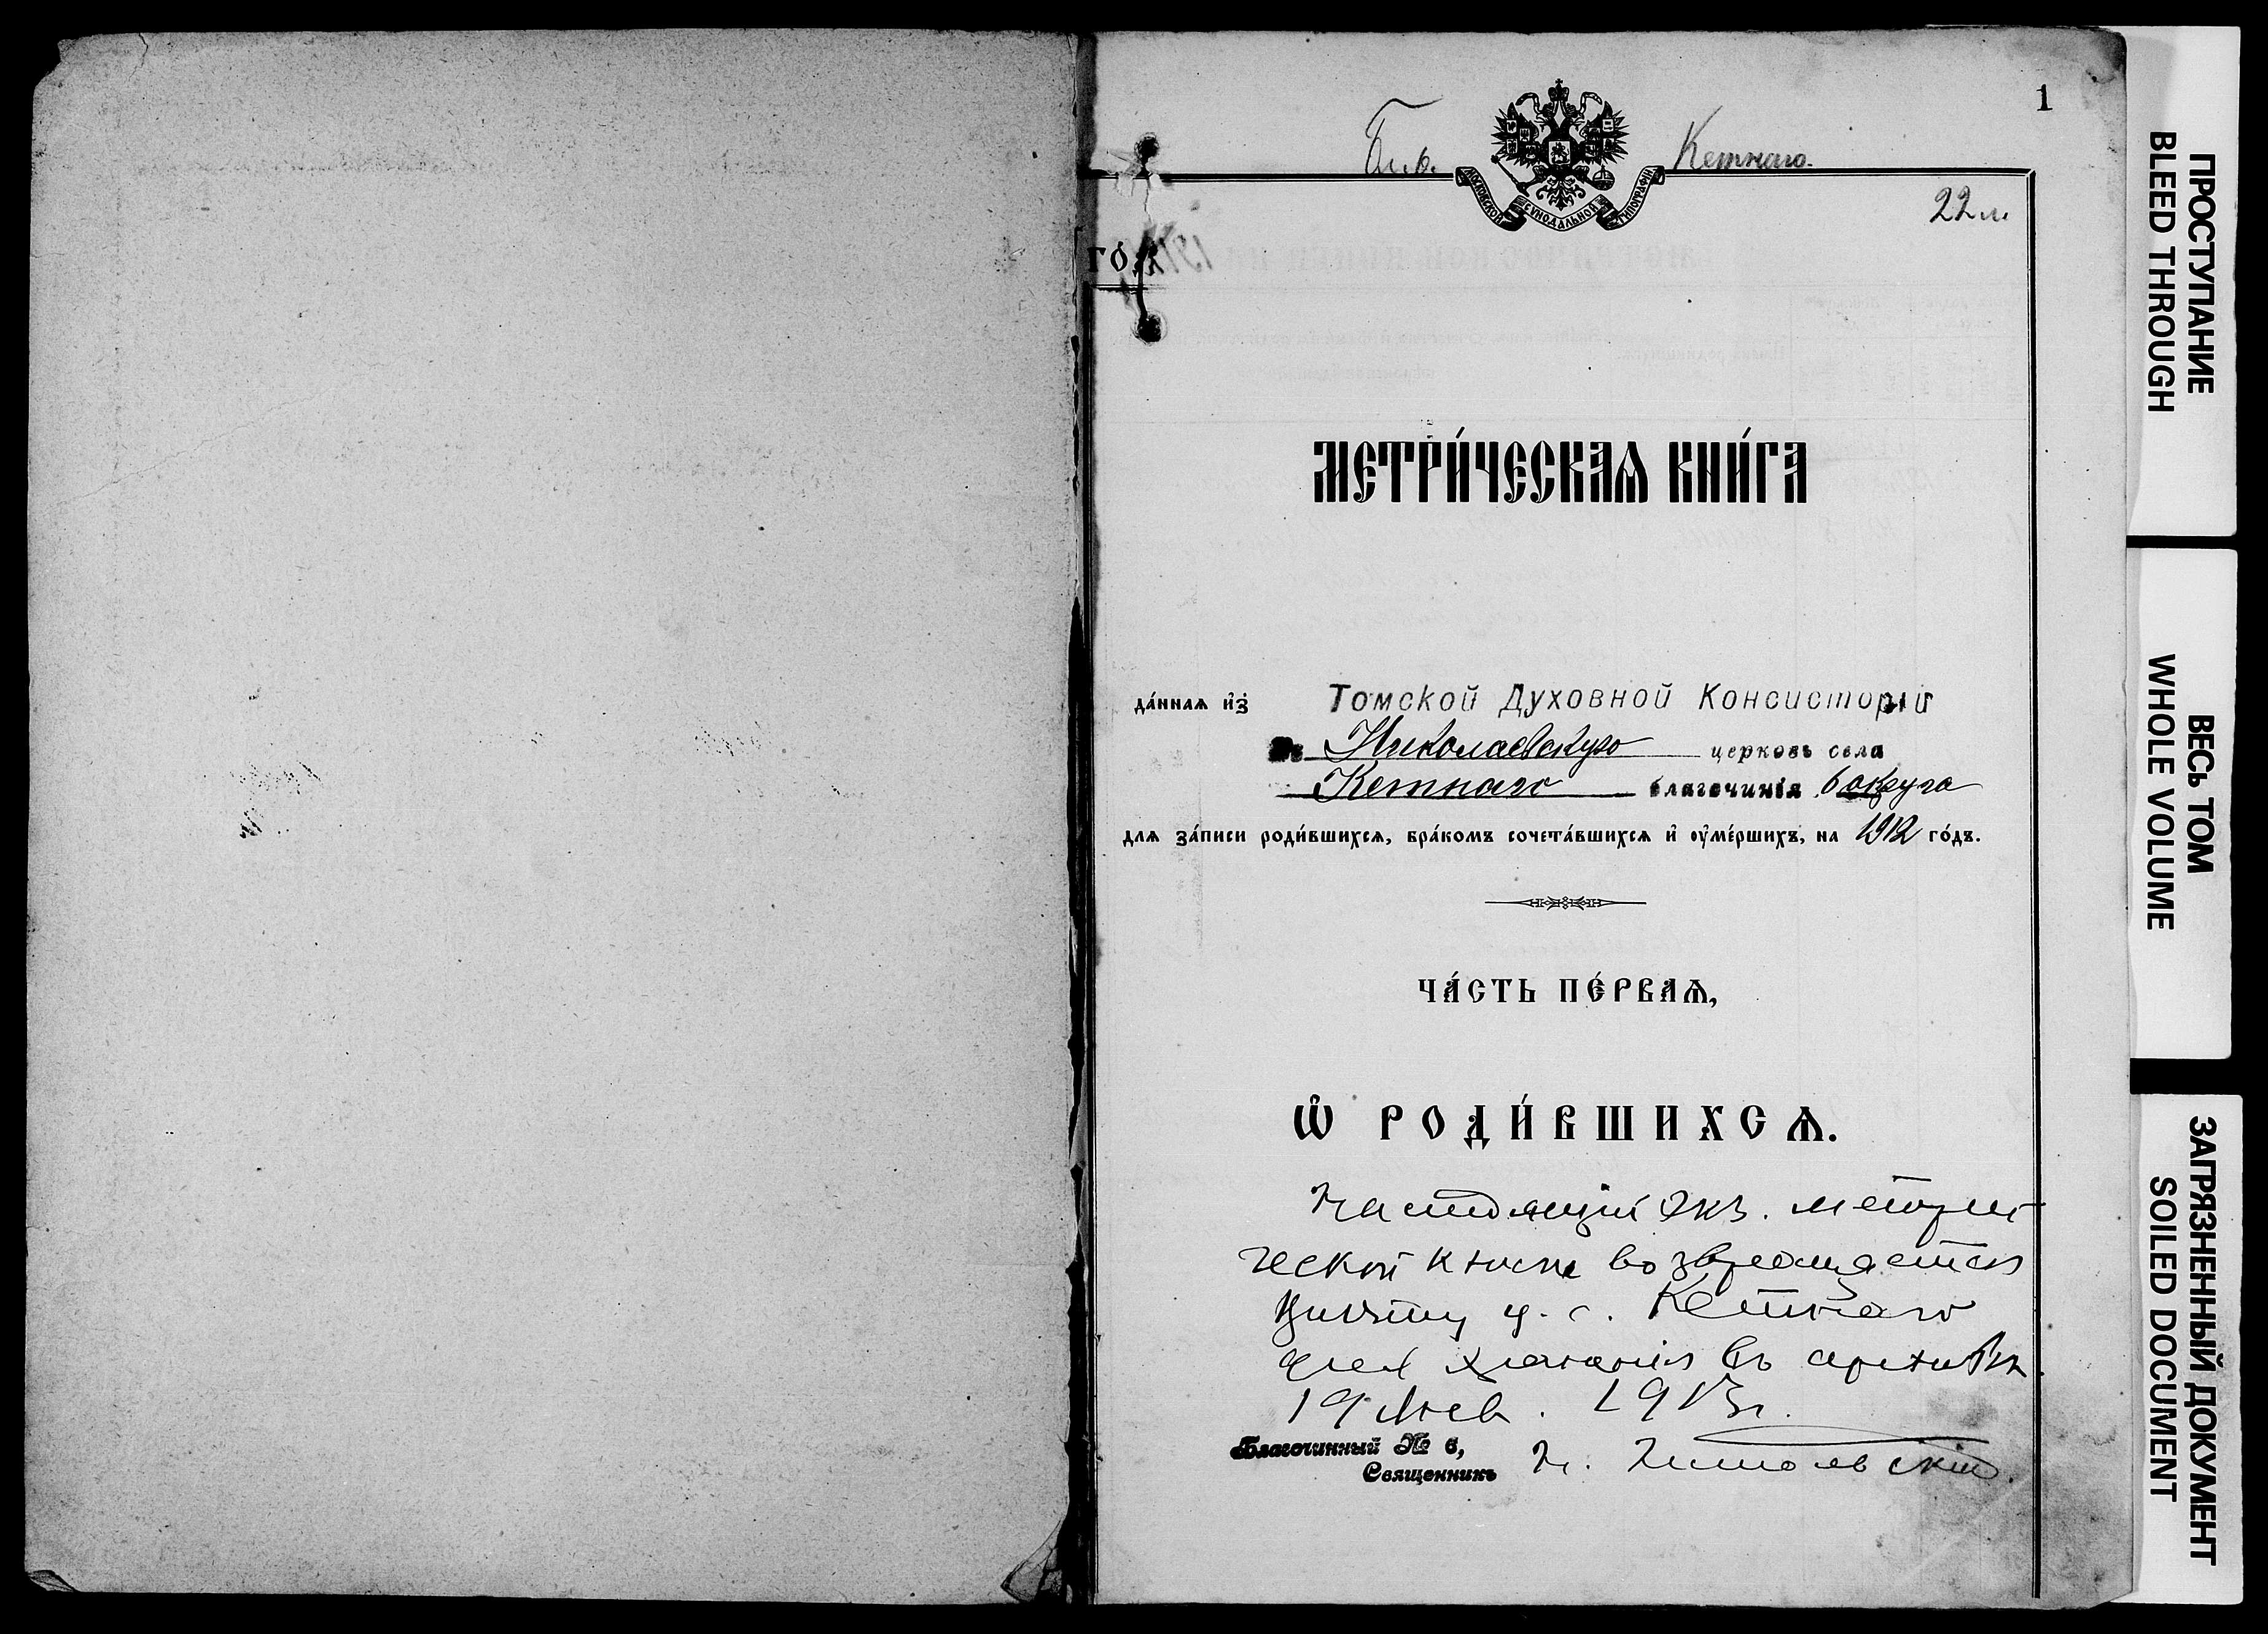 1
Бл. 6. Кетнаго.
МОСКОВСКОЙ СѴНОДАЛЬНОЙ ТИПОГРАФІИ
22 л.
го
МЕТРИ́ЧЕСКАѦ КНИ́ГА
да́ннаѧ и҆з̾ Томской Духовной Консисторіи
Николаевскую церковь села
Кетнаго благочинія 6 округа
для за́писи роди́вшихсѧ, бра́комъ сочета́вшихсѧ и҆ ᲂу҆ме́ршихъ, на 1912 го́дъ.
ЧА́СТЬ ПЕ́РВАѦ,
Ѽ РОДИ́ВШИХСѦ.
Настоящій экз. метри
ческой книги возвращается
причту ц. с. Кетнаго
для храненія въ архивѣ
19 1913 г.
Благочинный № 6,
Священникъ Н.
ПРОСТУПАНИЕ
BLEED THROUGH
ВЕСЬ ТОМ
WHOLE VOLUME
ЗАГРЯЗНЕННЫЙ ДОКУМЕНТ
SOILED DOCUMENT